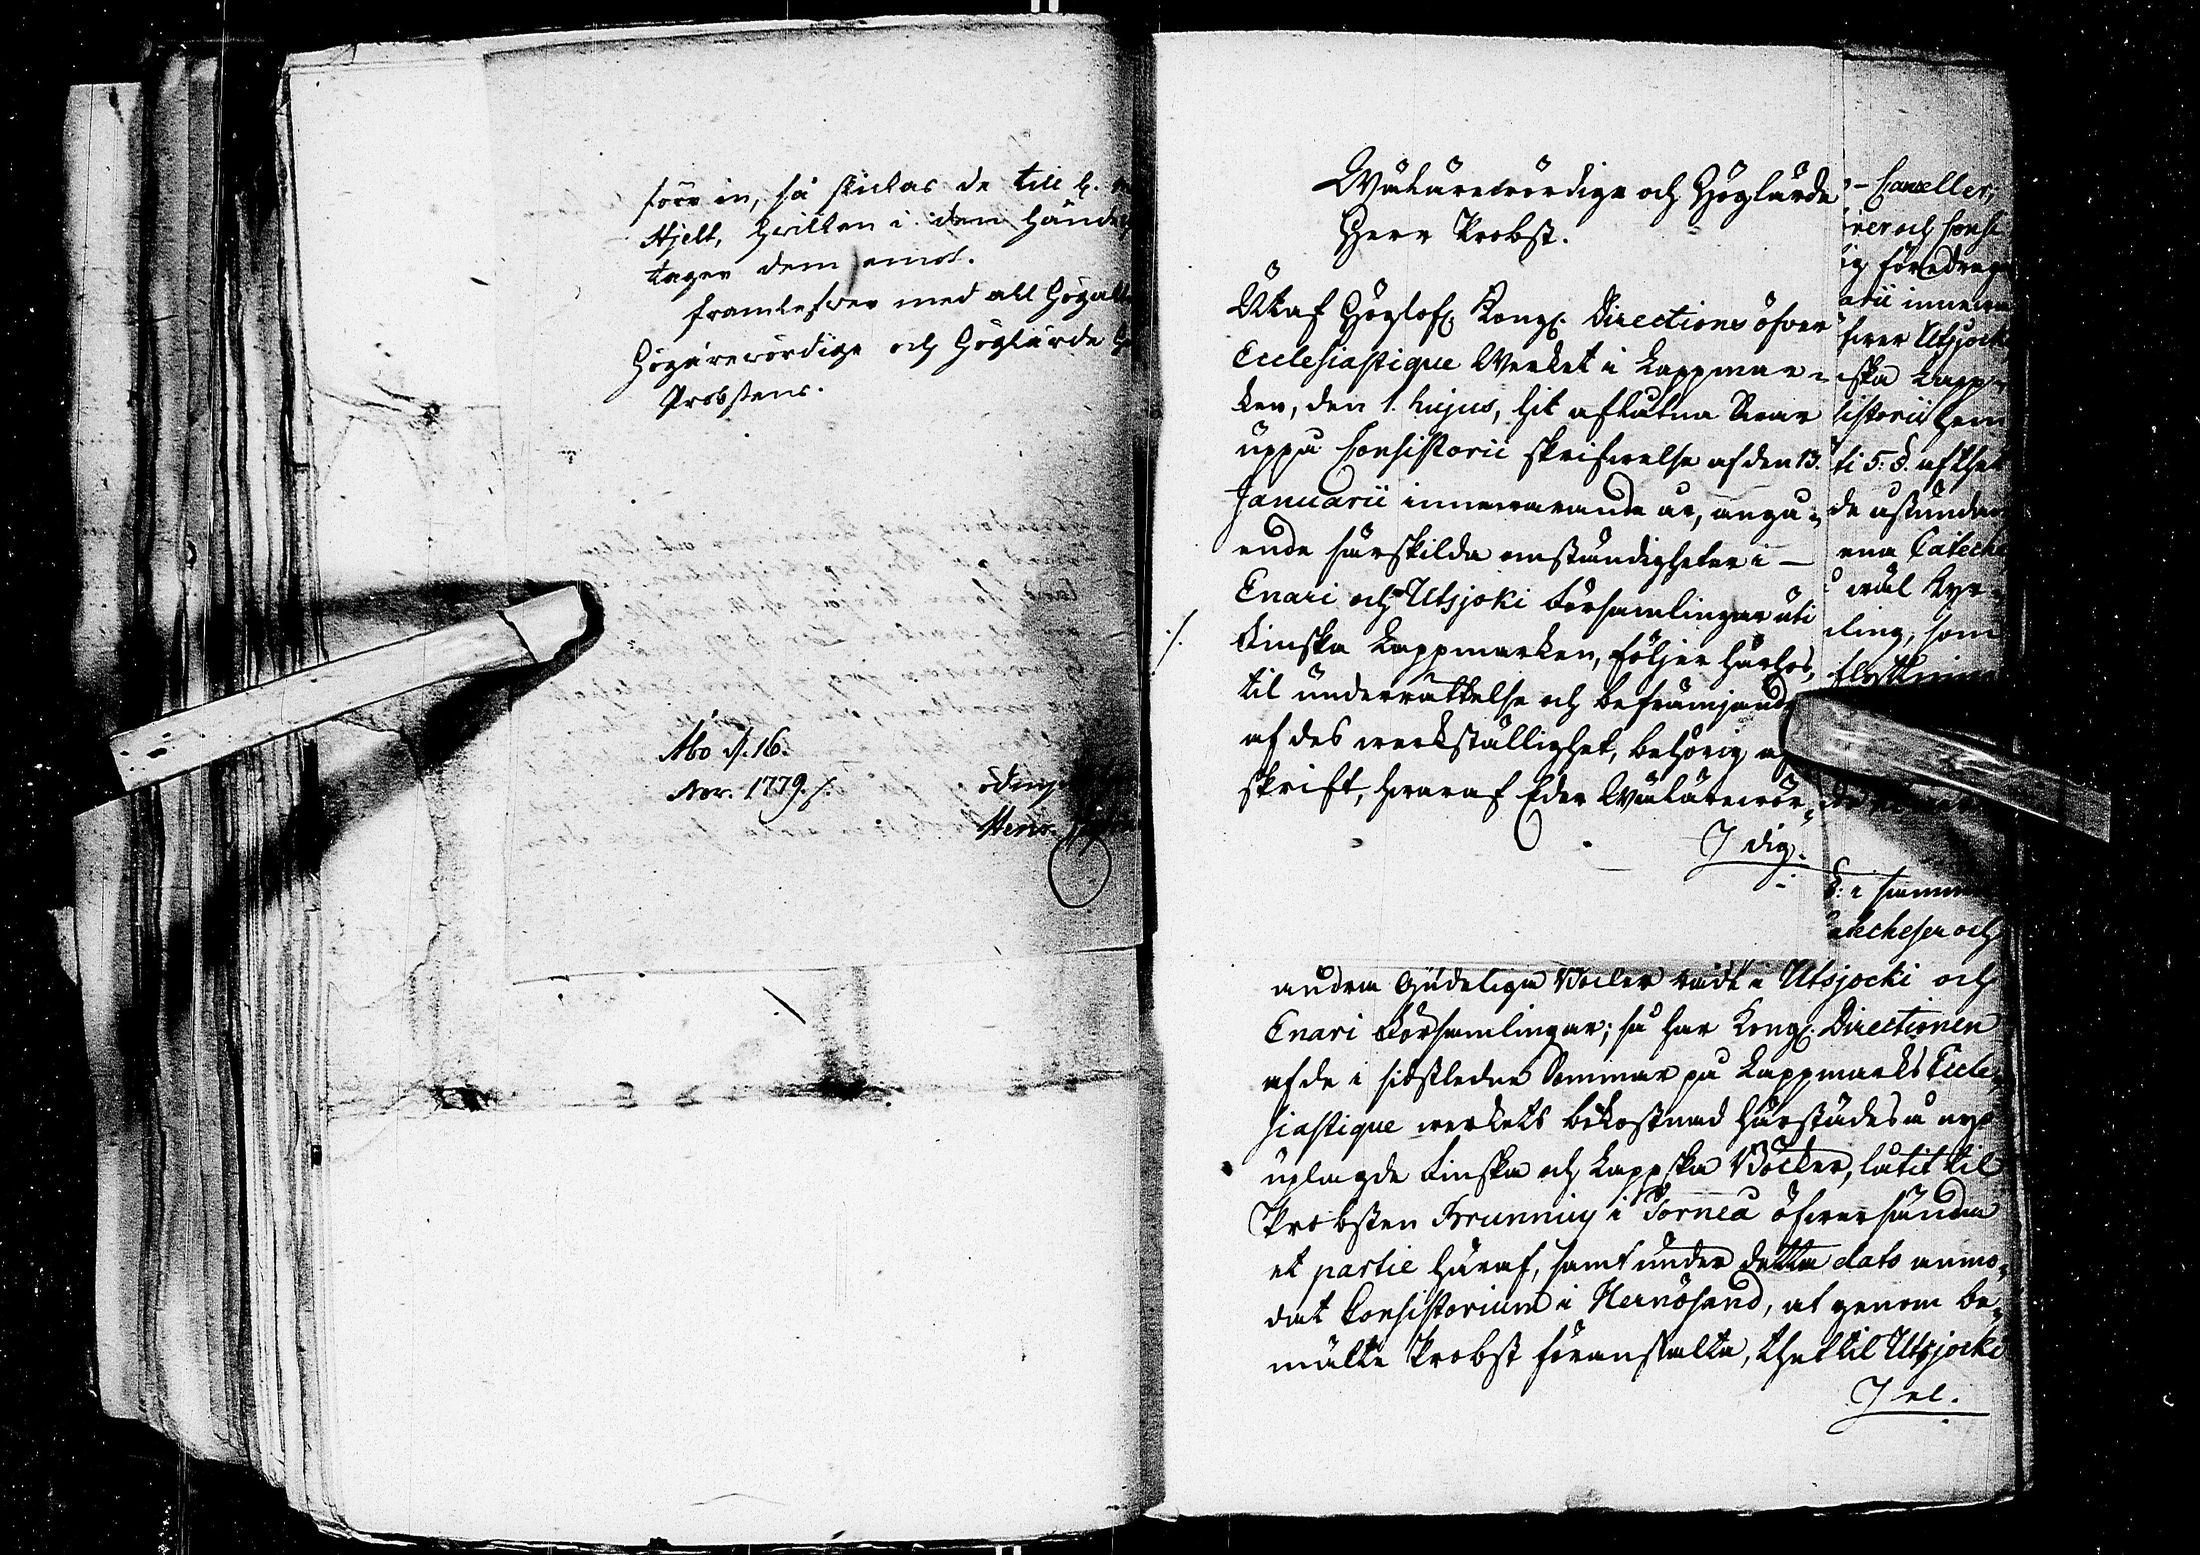 förr in, så skickas de till h.
Hjelt, hvilken i dem händer
tager dem emot.
framlefver med all högakt
Högärewördige och Höglärde H
Probstens.
Åbo d. 16.
Nov. 1779.
ödmju
Henr.
Wälärewördige och Höglärde
Herr Probst.
Utaf Höglofl. Kongl. Directions öfver
Ecclesiastique Werket i Lappmar-
ken, den 1. hujus, hit aflåtna Svar
uppå Consistorii skrifwelse af den 13.
Januarii innewarande år, angå-
ende särskilda omständigheter i
Enari och Utsjoki Församlingar uti
Finska Lappmarken, följer härhos,
til underrättelse och befrämjande
af des werkställighet, behörig a
skrift, hwaraf Eder Wälärewör-
J dig.
Canceller,
rer och Consi
ig föredrag
arii innewa
fwer Utsjock
ska Lapp
sistorii hem
ti 5: §. af thet
de åstundan
ena Cateche
wäl Kyr
ling, som
flyttning
§: i samma
atecheser och
andra Gudeliga Böcker wid i Utsjocki och
Enari Församlingar; så har Kongl. Directionen
af de i sidstledne Sommar på Lappmarks Eccle-
siastique werkets bekostnad härstädes å nyo
uplagde Finska och Lappska Böcker, låtit til
Probsten Brunnius i Torneå öfwersända
et partie häraf, samt under detta dato anmo-
dat Consistorium i Hernösand, at genom be-
mälte Probst föranstalta, thet til Utsjocki
J el.